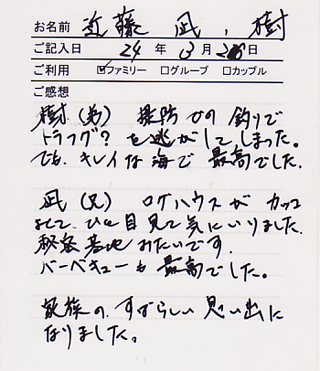 お名前 近藤 凪、樹
ご記入日 24年 3月 26日
ご利用 ☑ファミリー □グループ □カップル
ご感想
樹(弟) 堤防での釣りで
トラフグ?を逃がしてしまった。
でも、キレイな海で最高でした。
凪(兄) ログハウスがカッコ
よくて、ひと目見て気にいりました。
秘密基地みたいです。
バーベキューも最高でした。
家族の、すばらしい思い出に
なりました。